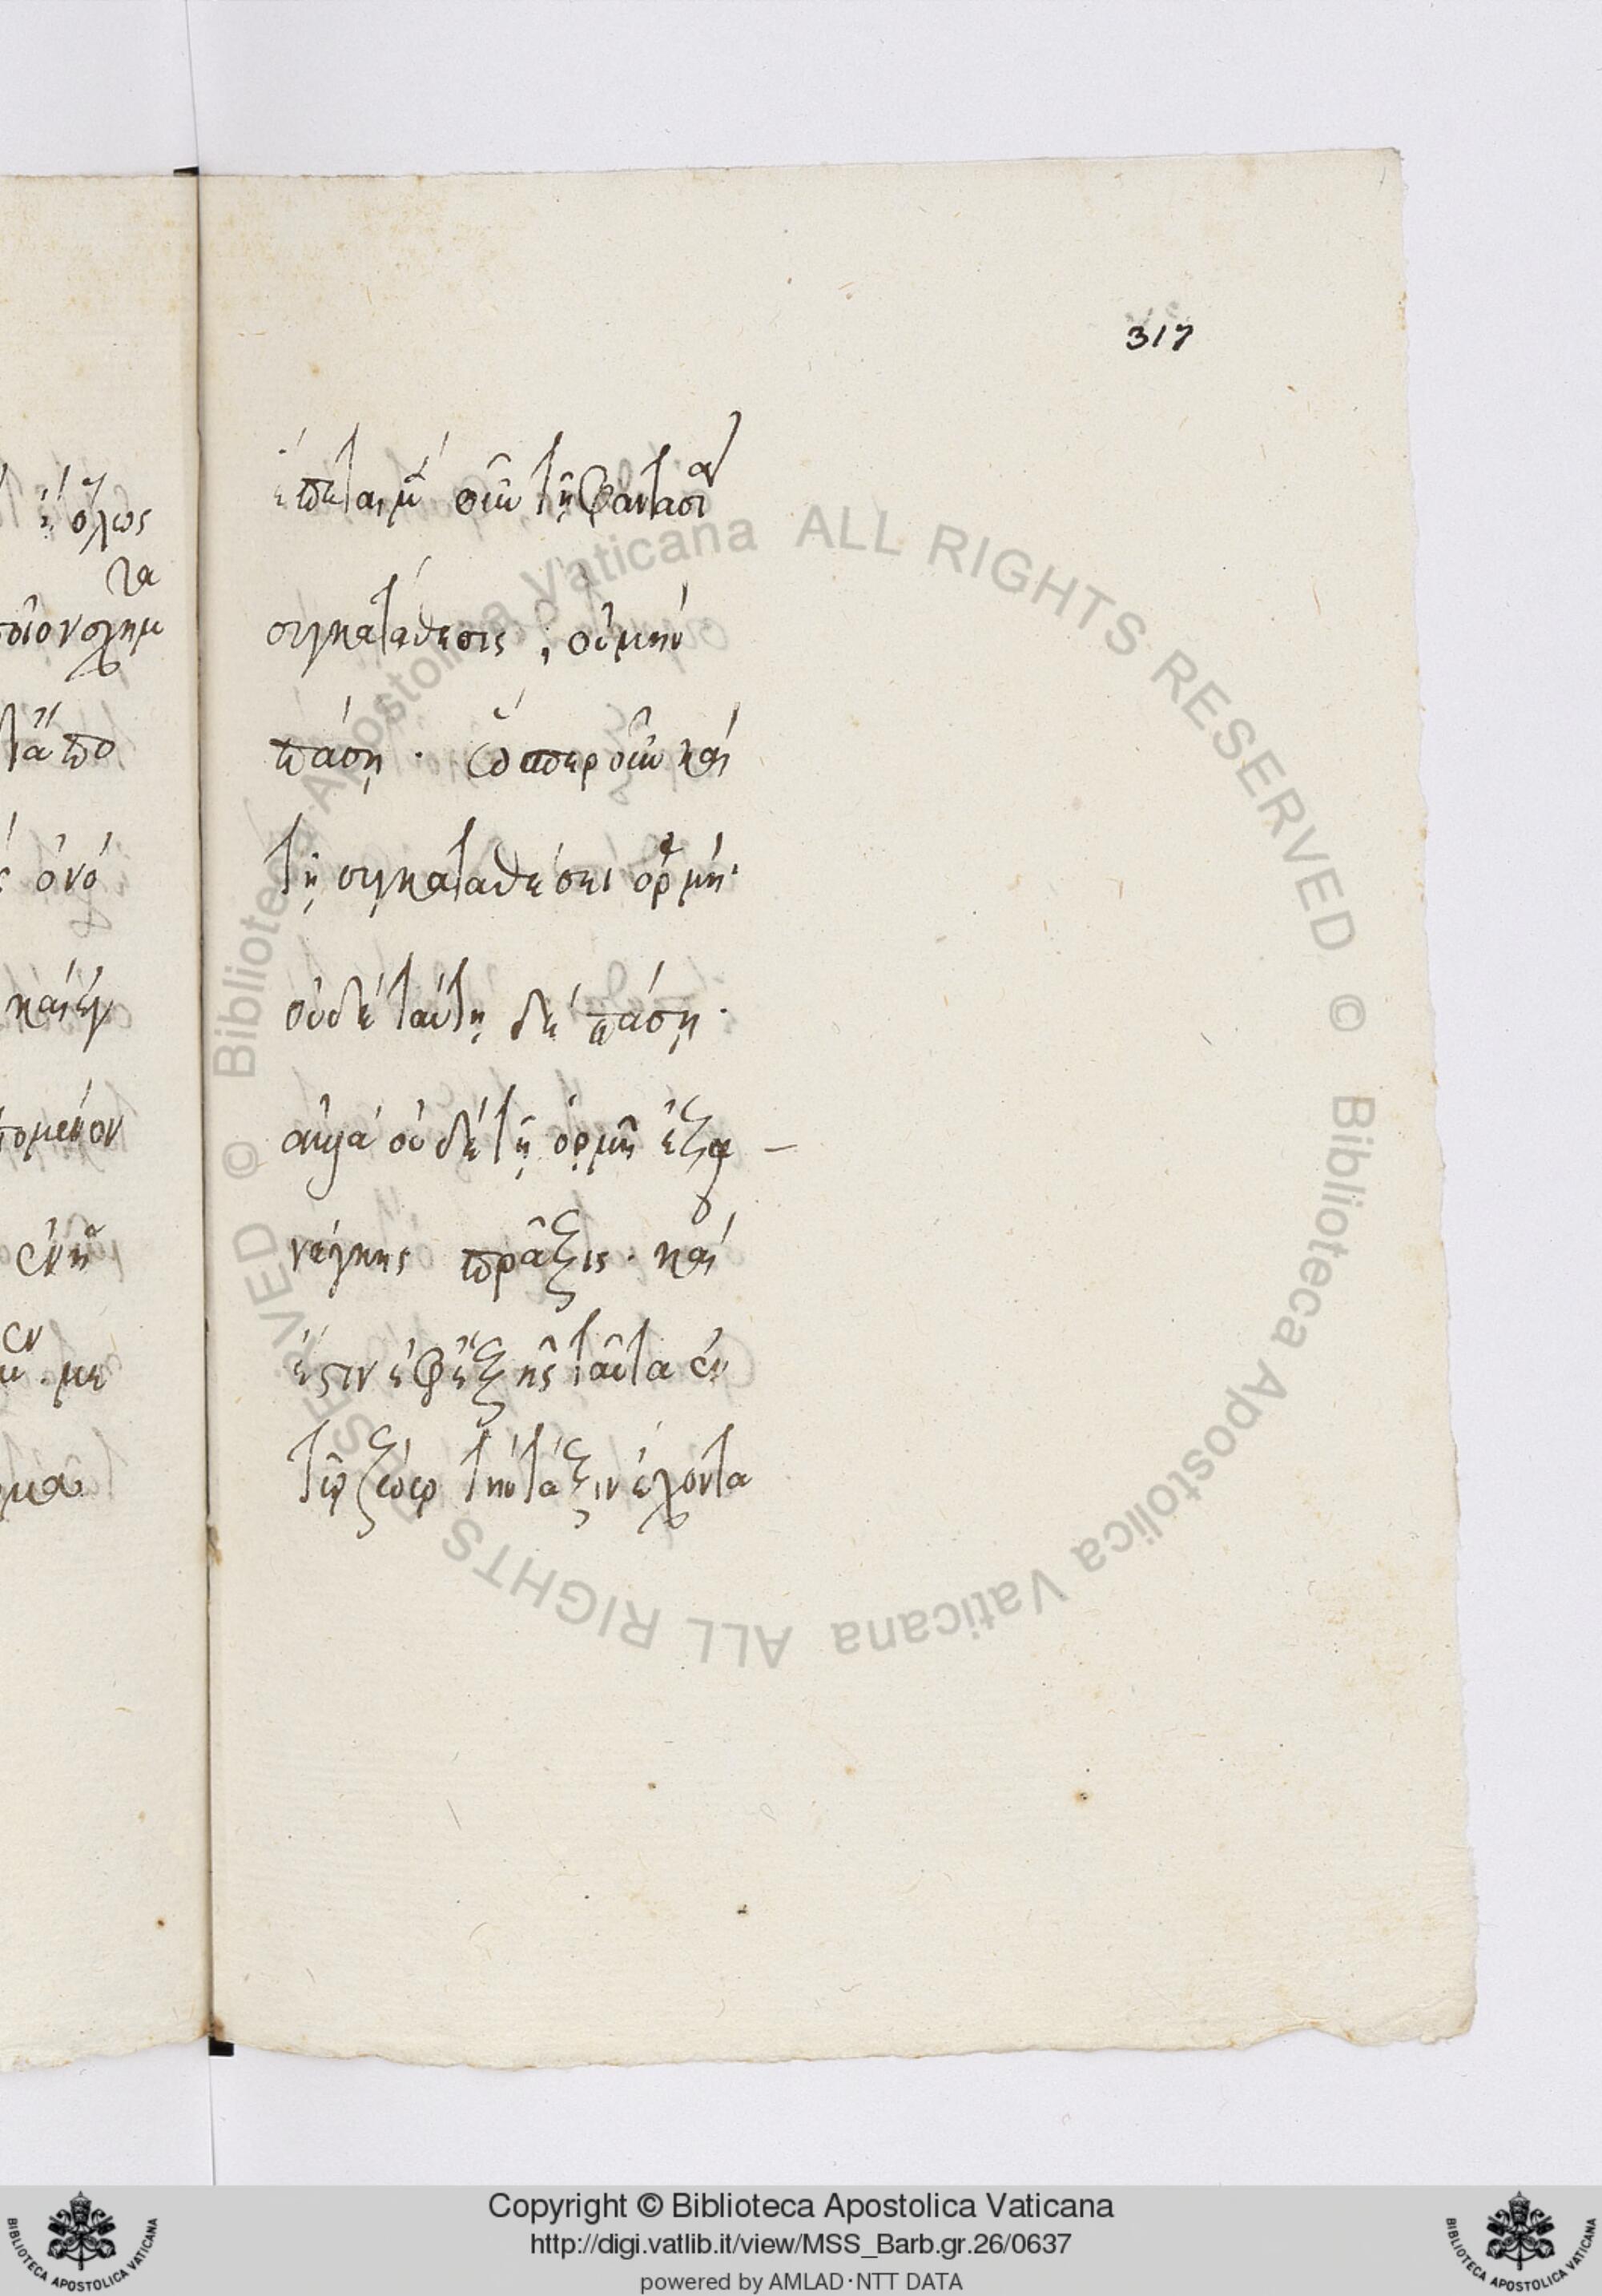 317
ἕπεται μὲν οὖν τῇ φαντασίᾳ
συγκατάθεσις, οὐ μὴν
πάσῃ· ὥσπερ οὖν καὶ
τῇ συγκαταθέσει ὁρμή·
οὐδὲ ταύτῃ δὲ πάσῃ·
οὐδὲ τῇ ὁρμῇ ἐξ ἀ–
νάγκης πρᾶξις· καὶ
ἔστιν ἐφεξῆς ταῦτα ἐν
τῷ ζώῳ τὴν τάξιν ἔχοντα
ὅλως
ὀνό
καὶ
© Biblioteca Apostolica Vaticana ALL RIGHTS RESERVED © Biblioteca Apostolica Vaticana ALL RIGHTS RESERVED
BIBLIOTECA APOSTOLICA VATICANA
Copyright © Biblioteca Apostolica Vaticana
http://digi.vatlib.it/view/MSS_Barb.gr.26/0637
powered by AMLAD·NTT DATA
BIBLIOTECA APOSTOLICA VATICANA